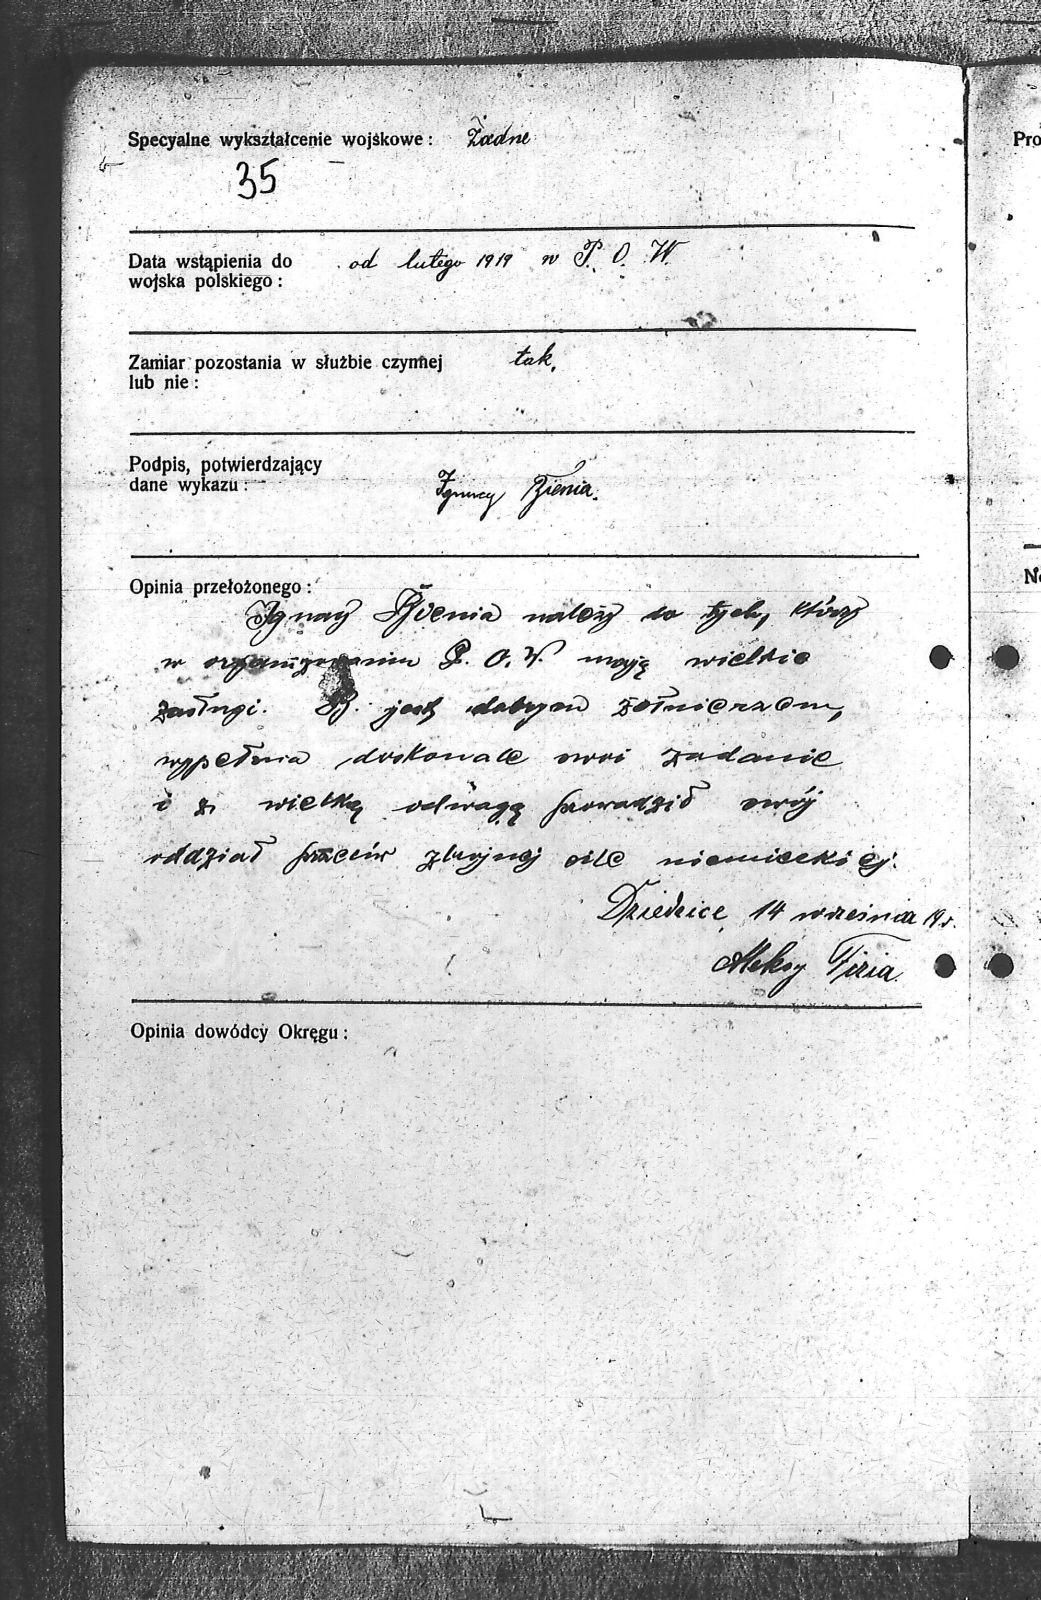 Specyalne wykształcenie wojskowe: Żadne
35
Data wstąpienia do od lutego 1919 w P. O. W.
wojska polskiego:
Zamiar pozostania w służbie czynnej tak,
lub nie:
Podpis, potwierdzający
dane wykazu: Ignacy Bienia.
Opinia przełożonego:
Ignacy Bienia należy do tych, którzy
w organizowaniu P. O. W. mają wielkie
zasługi. B. jest dobrym żołnierzem,
wypełnia doskonale swoi zadanie
i z wielką odwagą prowadził swój
oddział przeciw zbrojnej sile niemieckiej.
Dziedzice, 14 września 19 r.
Aleksy Fizia.
Opinia dowódcy Okręgu:
Pro